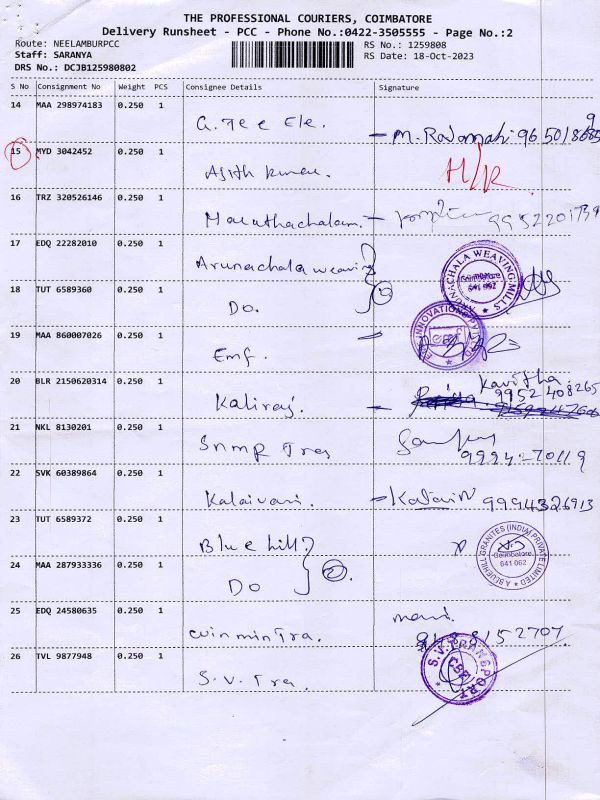 THE PROFESSIONAL COURIERS, COIMBATORE
Delivery Runsheet - PCC - Phone No.:0422-3505555 - Page No.:2
Route: NEELAMBURPCC
RS No.: 1259808
Staff: SARANYA
RS Date: 18-Oct-2023
DRS No.: DCJB125980802
S No Consignment No Weight PCS Consignee Details Signature
14 MAA 298974183 0.250 1
G. Tee Ele. - M. Rajamani
15 MYD 3042452 0.250 1
Ajith kumar. H/R
16 TRZ 320526146 0.250 1
Marathachalam. -
17 EDQ 22282010 0.250 1
Arunachala weaving
ARUNACHALA WEAVING MILLS
Coimbatore
641 062
18 TUT 6589360 0.250 1
Do. 2
19 MAA 860007026 0.250 1
Emf.
EMF INNOVATIONS PVT LTD
emf
20 BLR 2150620314 0.250 1
Kaliraj. - Kavitha
9952408265
21 NKL 8130201 0.250 1
Snmp Tra
9994270119
22 SVK 60389864 0.250 1
Kalaivani. - Kalaivani 9994326913
23 TUT 6589372 0.250 1
Blue hill.
BLUEHILL GRANITES (INDIA) PRIVATE LIMITED
Coimbatore
641 062
24 MAA 287933336 0.250 1
Do 2.
25 EDQ 24580635 0.250 1
mani.
winmin Tra. 2707.
26 TVL 9877948 0.250 1
S.V. Tra.
S.V. TRANSPORT
CBE